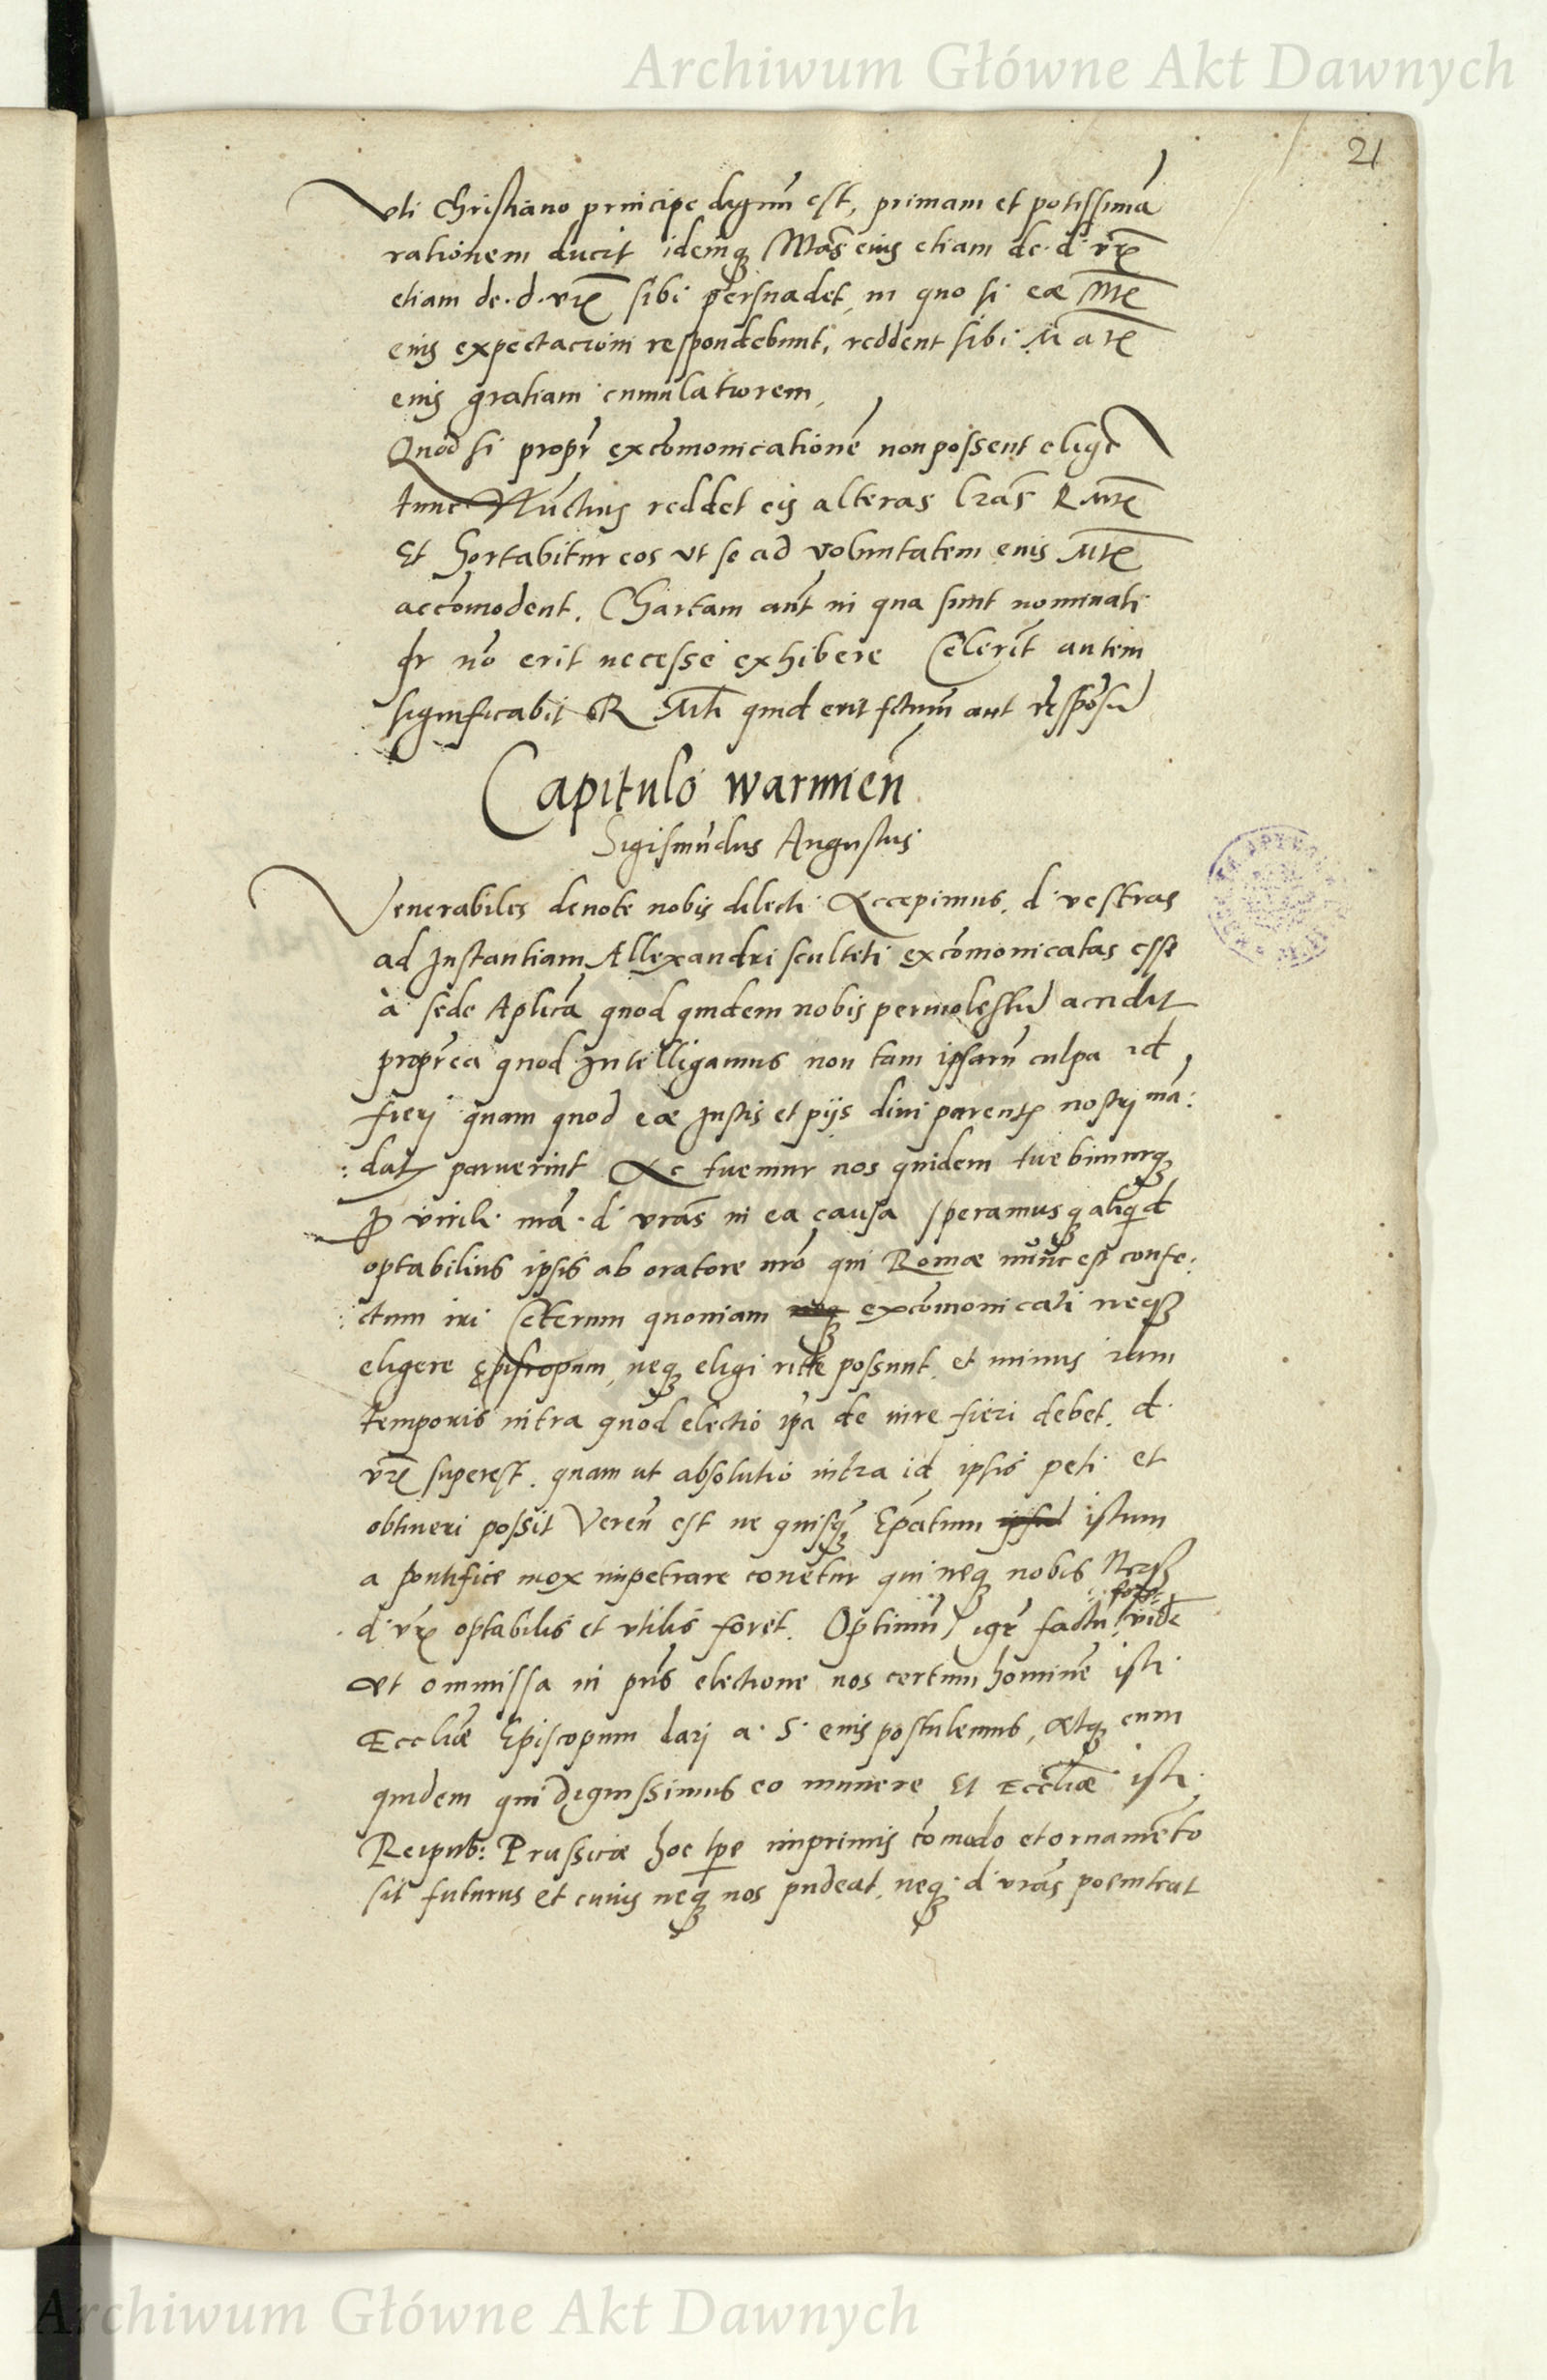 Archiwum Główne Akt Dawnych
21
vti Christiano principe dignum̃ est, primam et potissimã
rationem ducit idemq̃ Mãs eius etiam de. d. vr̃is
etiam de. d. vr̃is sibi persuadet, in quo si eæ Mt̃is
eius expectacioni respondebunt, reddent sibi Mat̃is
eius gratiam cumulatiorem,
Quod si propr̃ excõmonicationẽ non possent elige
tunc Nũctius reddet eis alteras lr̃as R Mt̃is
Et hortabitur eos vt se ad voluntatem eius Mt̃is
accõmodent. Chartam aũt in qua sunt nominati
nõ erit necesse exhibere Celerit̃ autem
significabit R Mt̃i quid erit fctum̃ aut r̃esponsũ
Capitulo warmieñ
Sigismũdus Augustus
Venerabiles deuote nobis dilecti Accepimus. d. vestras
ad Instantiam Allexandri sculteti excõmonicatas esse
à sede Apl̃ica quod quidem nobis permolestũ accidit
propr̃ea quod Intelligamus non tam ipsarũ culpa id
fieri quam quod eæ Iustis et pijs diui parent̃is nostri mã:
:datis paruerint Ac tuemur nos quidem tuebimurq̃
P virili. nr̃a. d. vrãs in ea causa speramusq̃ aliquid
optabilius ipsis ab oratore nr̃o qui Romæ nunc est confe:
:ctum iri Ceterum quoniam excõmonicati neq̃
eligere episcopum, neq̃ eligi rite possunt, et minus iam
temporis intra quod electio ip̃a de iure fieri debet. d.
vr̃is superest. quam ut absolutio intra id ipsis peti et
obtineri possit Vereñ est ne quisq̃ Ep̃atum ipsũ istum
a pontifice mox impetrare conetur qui neq̃ nobis Neq̃
d. vr̃is optabilis et vtilis foret. Optimũ igr̃ factũ vidẽ
Ut ommissa in pñs electione nos certum hominẽ isti
Eccl̃iæ Episcopum dari a. S. eius postulemus, Atq̃ eum
quidem qui Dignissimus eo munere Et Eccl̃iæ isti
Reipub: Prussicæ hoc tp̃e imprimis cõmodo et ornamẽto
sit futurus et cuius neq̃ nos pudeat, neq̃. d. vrãs poeniteat
Archiwum Główne Akt Dawnych